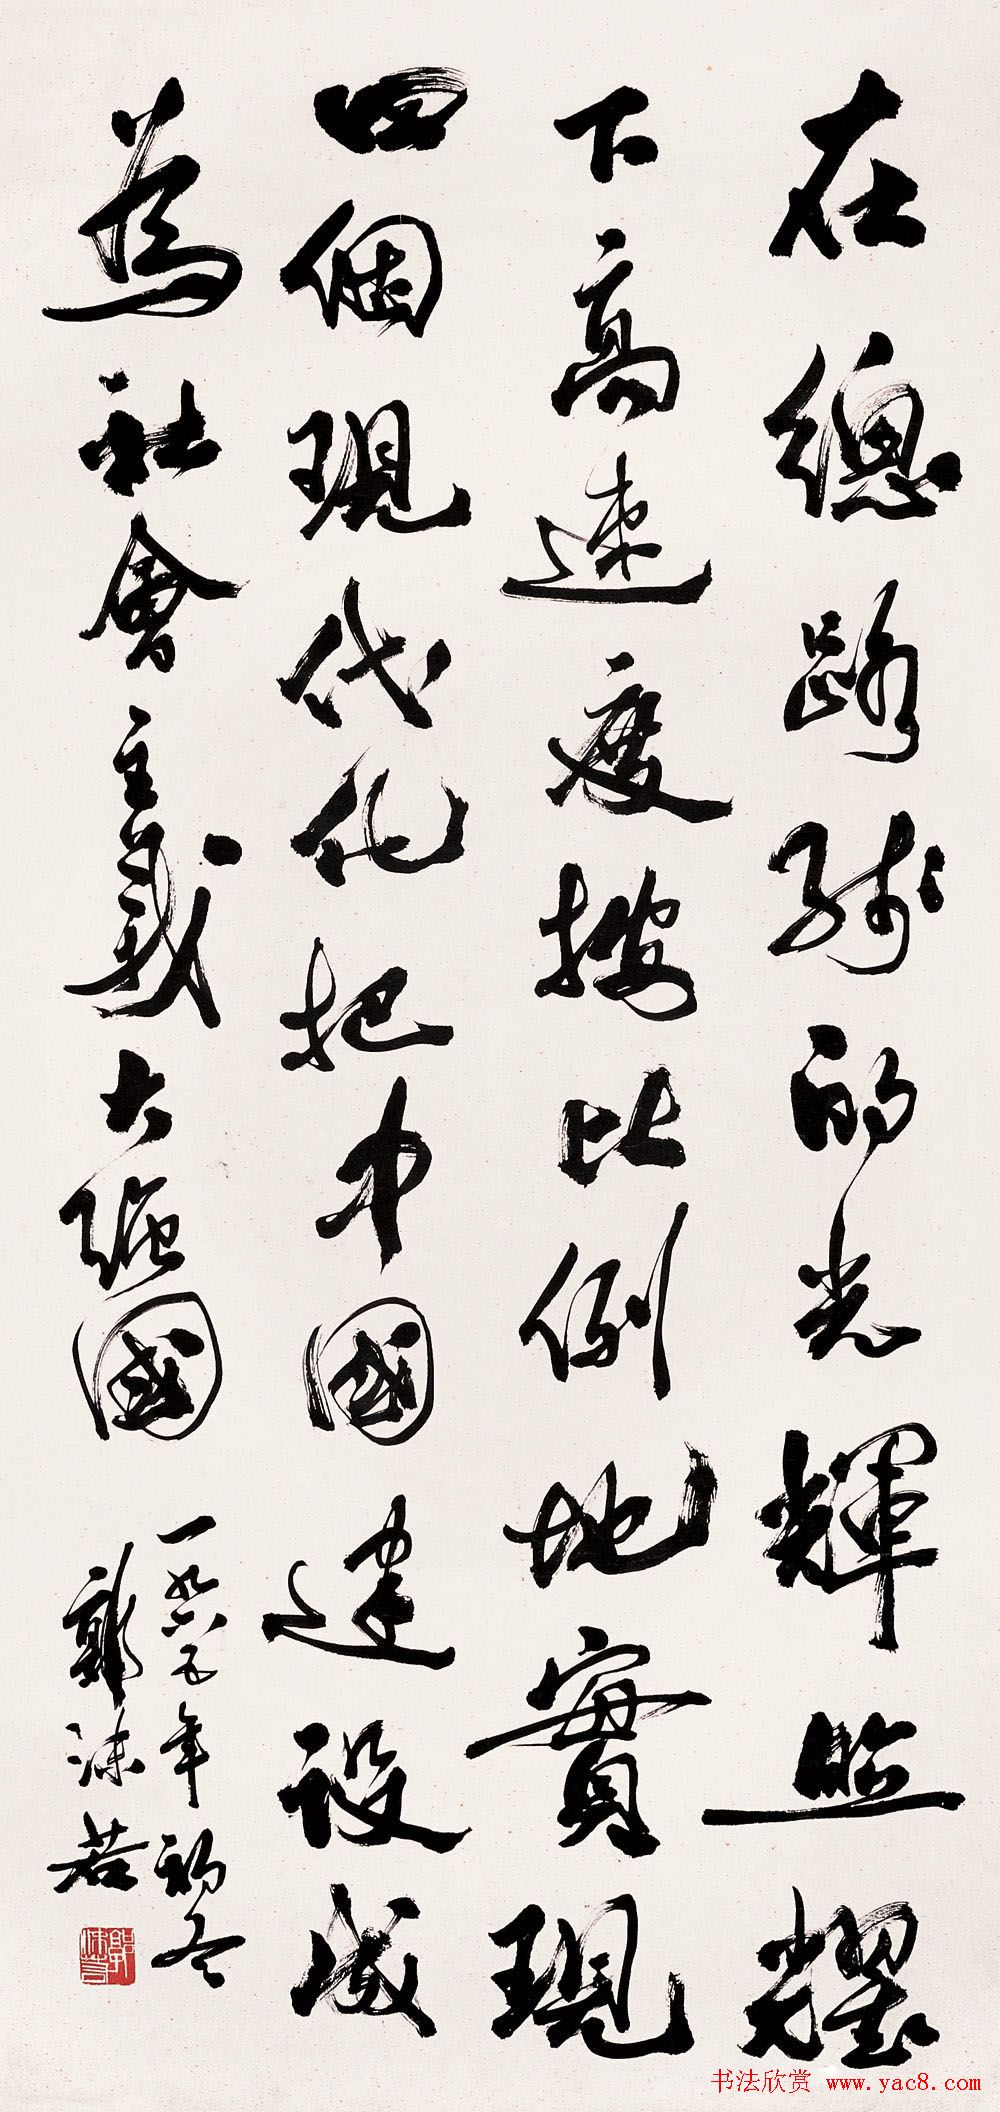 在總路綫的光輝照耀
下高速度按比例地實現
四個現代化把中國建設成
為社會主義大強國
一九六五年初冬
郭沫若
郭沫若
书法欣赏 www.yac8.com